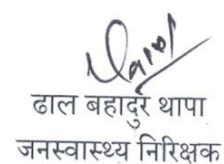 ढाल बहादुर थापा
जनस्वास्थ्य निरिक्षक